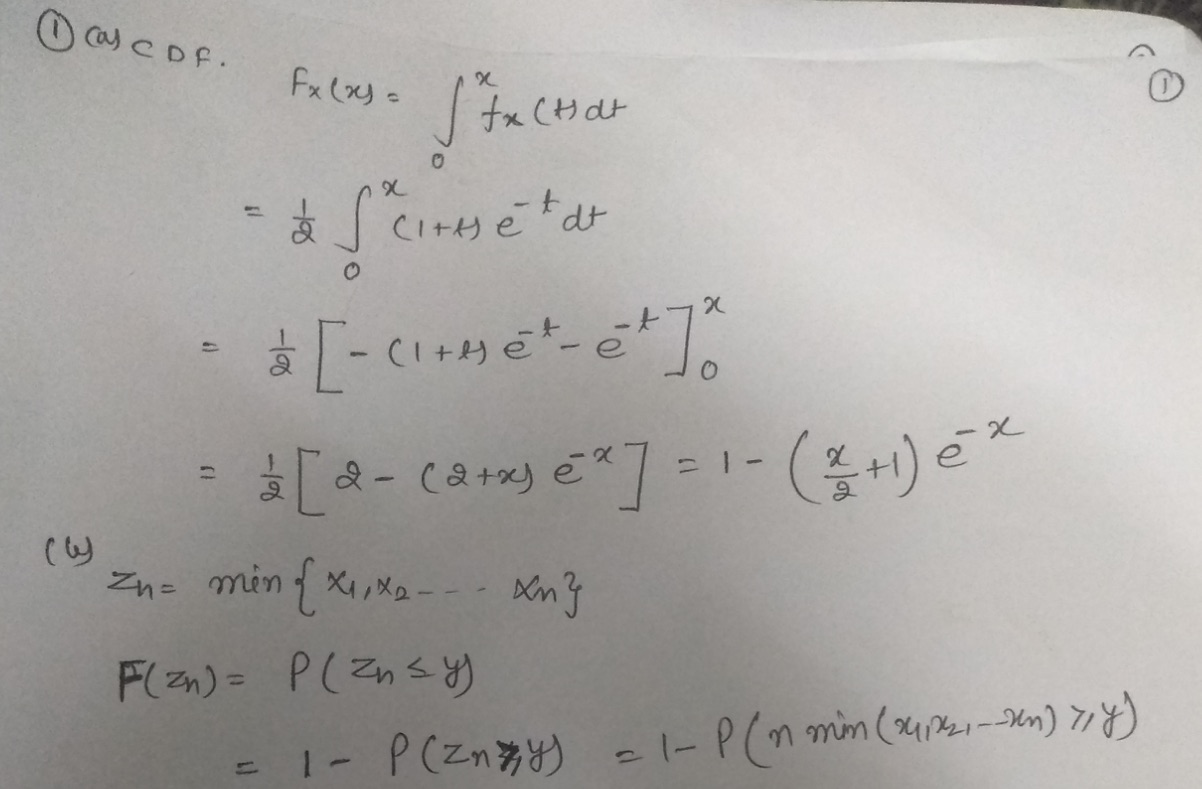 ① (a) CDF.
①
Fx(x) = ∫₀ˣ fx(t) dt
= 1/2 ∫₀ˣ (1+t) e⁻ᵗ dt
= 1/2 [ -(1+t) e⁻ᵗ - e⁻ᵗ ]₀ˣ
= 1/2 [ 2 - (2+x) e⁻ˣ ] = 1 - (x/2 + 1) e⁻ˣ
(b)
Zn = min { x₁, x₂ - - - - xn }
F(Zn) = P(Zn ≤ y)
= 1 - P(Zn ≥ y) = 1 - P(n min(x₁, x₂, - - xn) ≥ y)